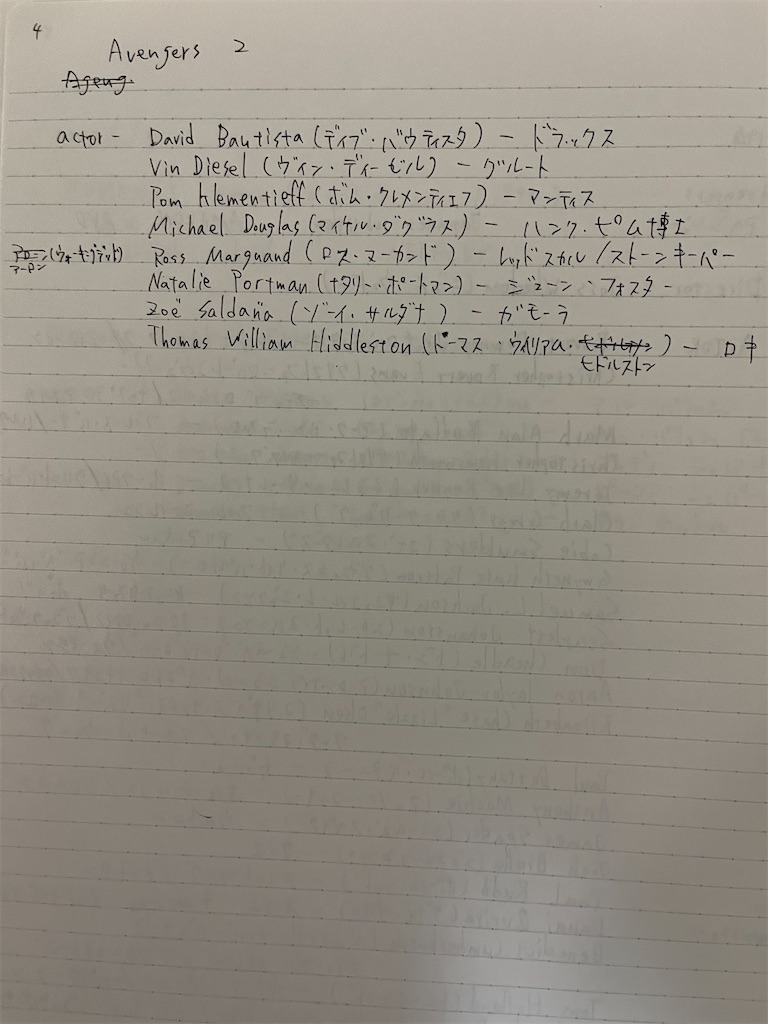 4
Avengers 2
Ageng.
actor - David Bautista (デイブ・バウティスタ) - ドラックス
Vin Diesel (ヴィン・ディーゼル) - グルート
Pom klementieff (ポム・クレメンティエフ) - マンティス
Michael Douglas (マイケル・ダグラス) - ハンク・ピム博士
アローン (ウォーキングデッド) Ross Marguand (ロス・マーカンド) - レッドスカル / ストーンキーパー
アーロン
Natalie Portman (ナタリー・ポートマン) - ジェーン・フォスター
Zoë Saldaña (ゾーイ・サルダナ) - ガモーラ
Thomas William Hiddleston (トーマス・ウィリアム・) - ロキ
ヒドルストン